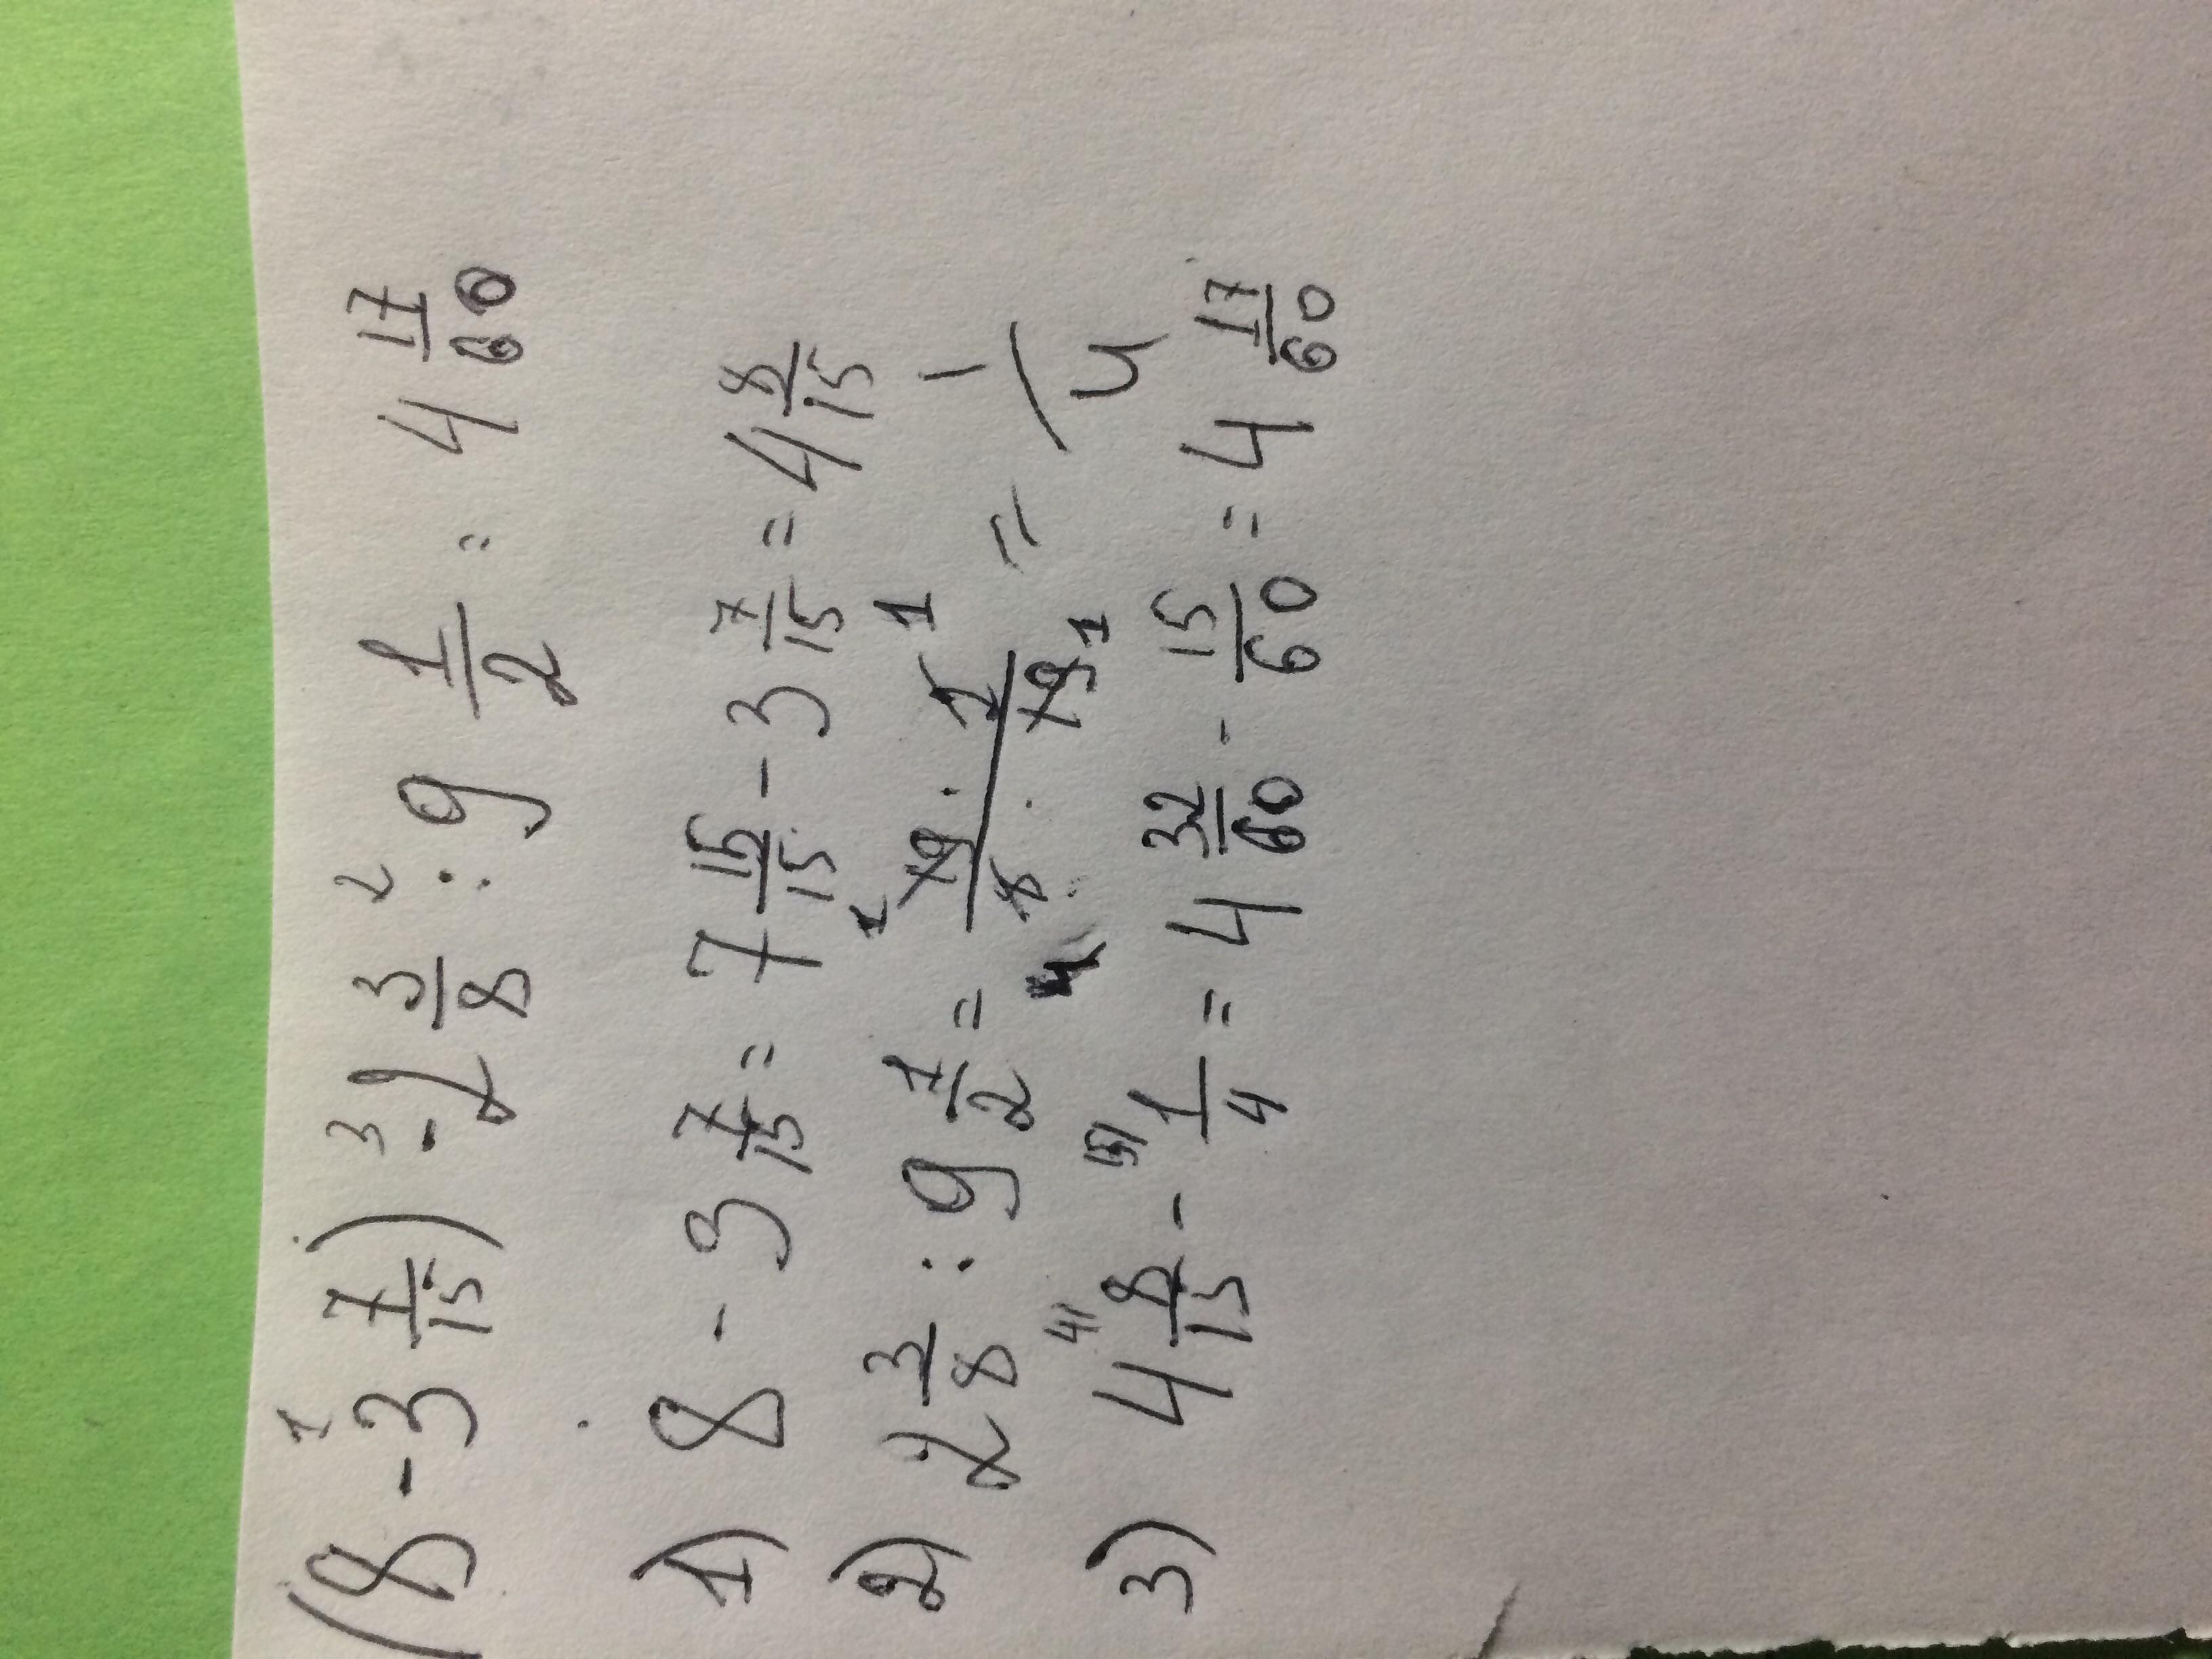 (8 - 3 7/15) - 2 3/8 : 9 1/2 = 4 17/60
1) 8 - 3 7/15 = 7 15/15 - 3 7/15 = 4 8/15
2) 2 3/8 : 9 1/2 = 19 · 2 / 8 · 19 = 1/4
3) 4 8/15 - 1/4 = 4 32/60 - 15/60 = 4 17/60